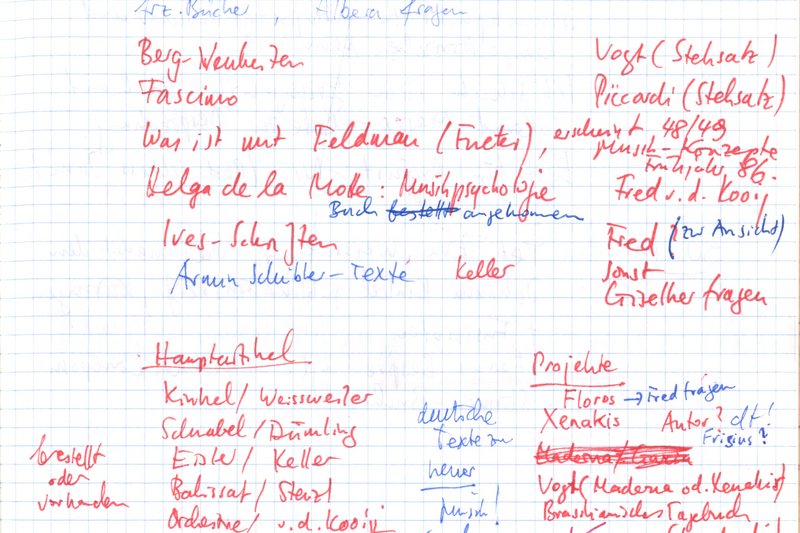 frz. Bücher, Albera fragen
Berg-Neuheiten Vogt (Stehsatz)
Fascimo Piccardi (Stehsatz)
Was ist mit Feldman (Fueter), erscheint 48/49
Musik-Konzepte
Frühjahr 86.
Helga de la Motte: Musikpsychologie Fred v. d. Kooij
Buch bestellt angekommen
Ives-Schriften Fred (zur Ansicht)
Armin Schibler-Texte Keller sonst
Giselher fragen
Hauptartikel
Kinkel / Weissweiler
Schnabel / Dümling
EDW / Keller
Balissat / Stenzl
Orchestrie/ v. d. Kooij
bestellt
oder
vorhanden
deutsche
Texte zu
neuer
Musik!
Projekte
Floros → Fred fragen
Xenakis Autor? dt!
Frisius?
Maderna /
Vogt (Maderna od. Xenakis)
Brasilianisches Tagebuch